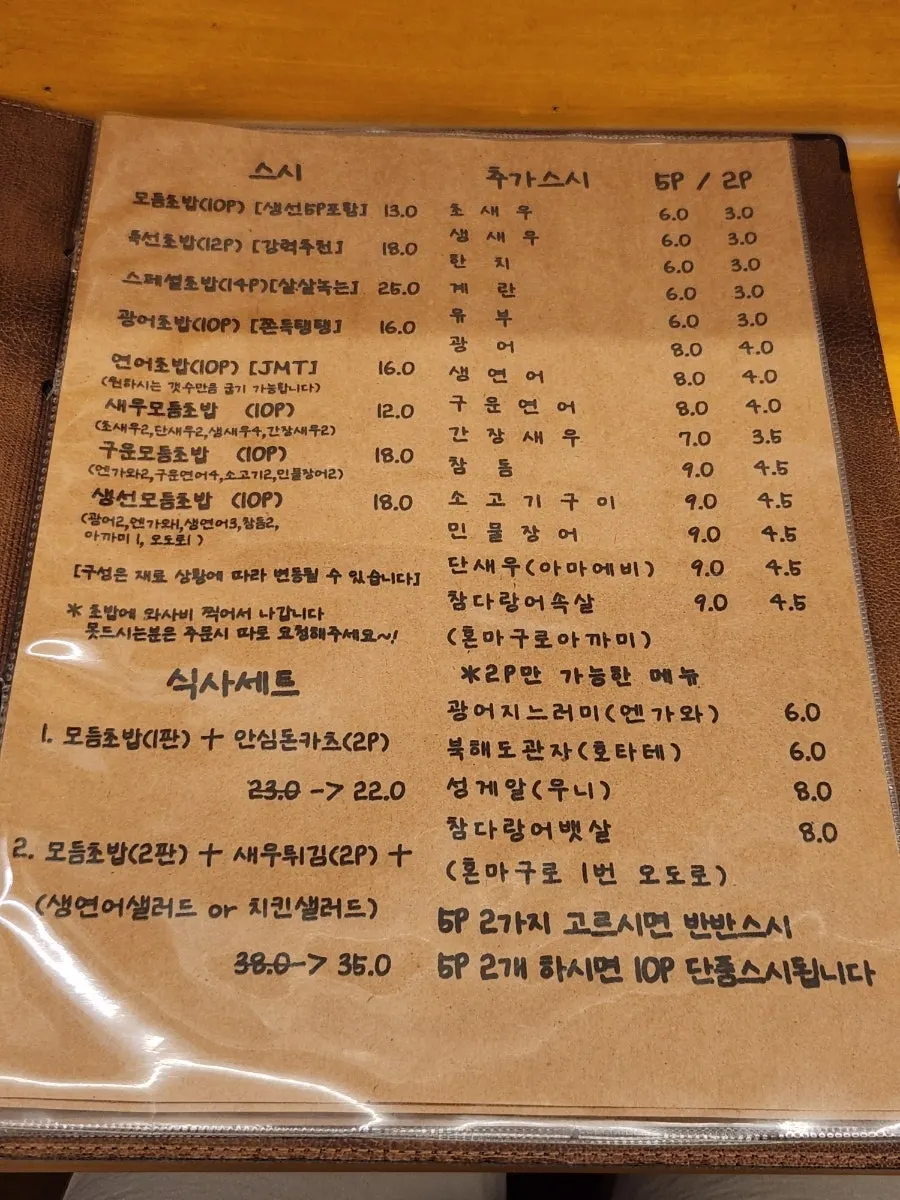 스시
모듬초밥(10P) [생선5P포함] 13.0
특선초밥(12P) [강력추천] 18.0
스페셜초밥(14P)[살살녹는] 25.0
광어초밥(10P) [쫀득탱탱] 16.0
연어초밥(10P) [JMT] 16.0
(원하시는 갯수만큼 굽기 가능합니다)
새우모듬초밥 (10P) 12.0
(초새우2,단새우2,생새우4,간장새우2)
구운모듬초밥 (10P) 18.0
(엔가와2,구운연어4,소고기2,민물장어2)
생선모듬초밥 (10P) 18.0
(광어2,엔가와1,생연어3,참돔2,
아까미 1, 오도로1 )
[구성은 재료 상황에 따라 변동될 수 있습니다]
* 초밥에 와사비 찍어서 나갑니다
못드시는분은 주문시 따로 요청해주세요~!
식사세트
1. 모듬초밥(1판) + 안심돈카츠(2P)
23.0 -> 22.0
2. 모듬초밥(2판) + 새우튀김(2P) +
(생연어샐러드 or 치킨샐러드)
38.0 -> 35.0
추가스시 5P / 2P
초새우 6.0 3.0
생새우 6.0 3.0
한치 6.0 3.0
계란 6.0 3.0
유부 6.0 3.0
광어 8.0 4.0
생연어 8.0 4.0
구운연어 8.0 4.0
간장새우 7.0 3.5
참돔 9.0 4.5
소고기구이 9.0 4.5
민물장어 9.0 4.5
단새우(아마에비) 9.0 4.5
참다랑어속살 9.0 4.5
(혼마구로아까미)
*2P만 가능한 메뉴
광어지느러미(엔가와) 6.0
북해도관자(호타테) 6.0
성게알(우니) 8.0
참다랑어뱃살 8.0
(혼마구로 1번 오도로)
5P 2가지 고르시면 반반스시
5P 2개 하시면 10P 단품스시됩니다